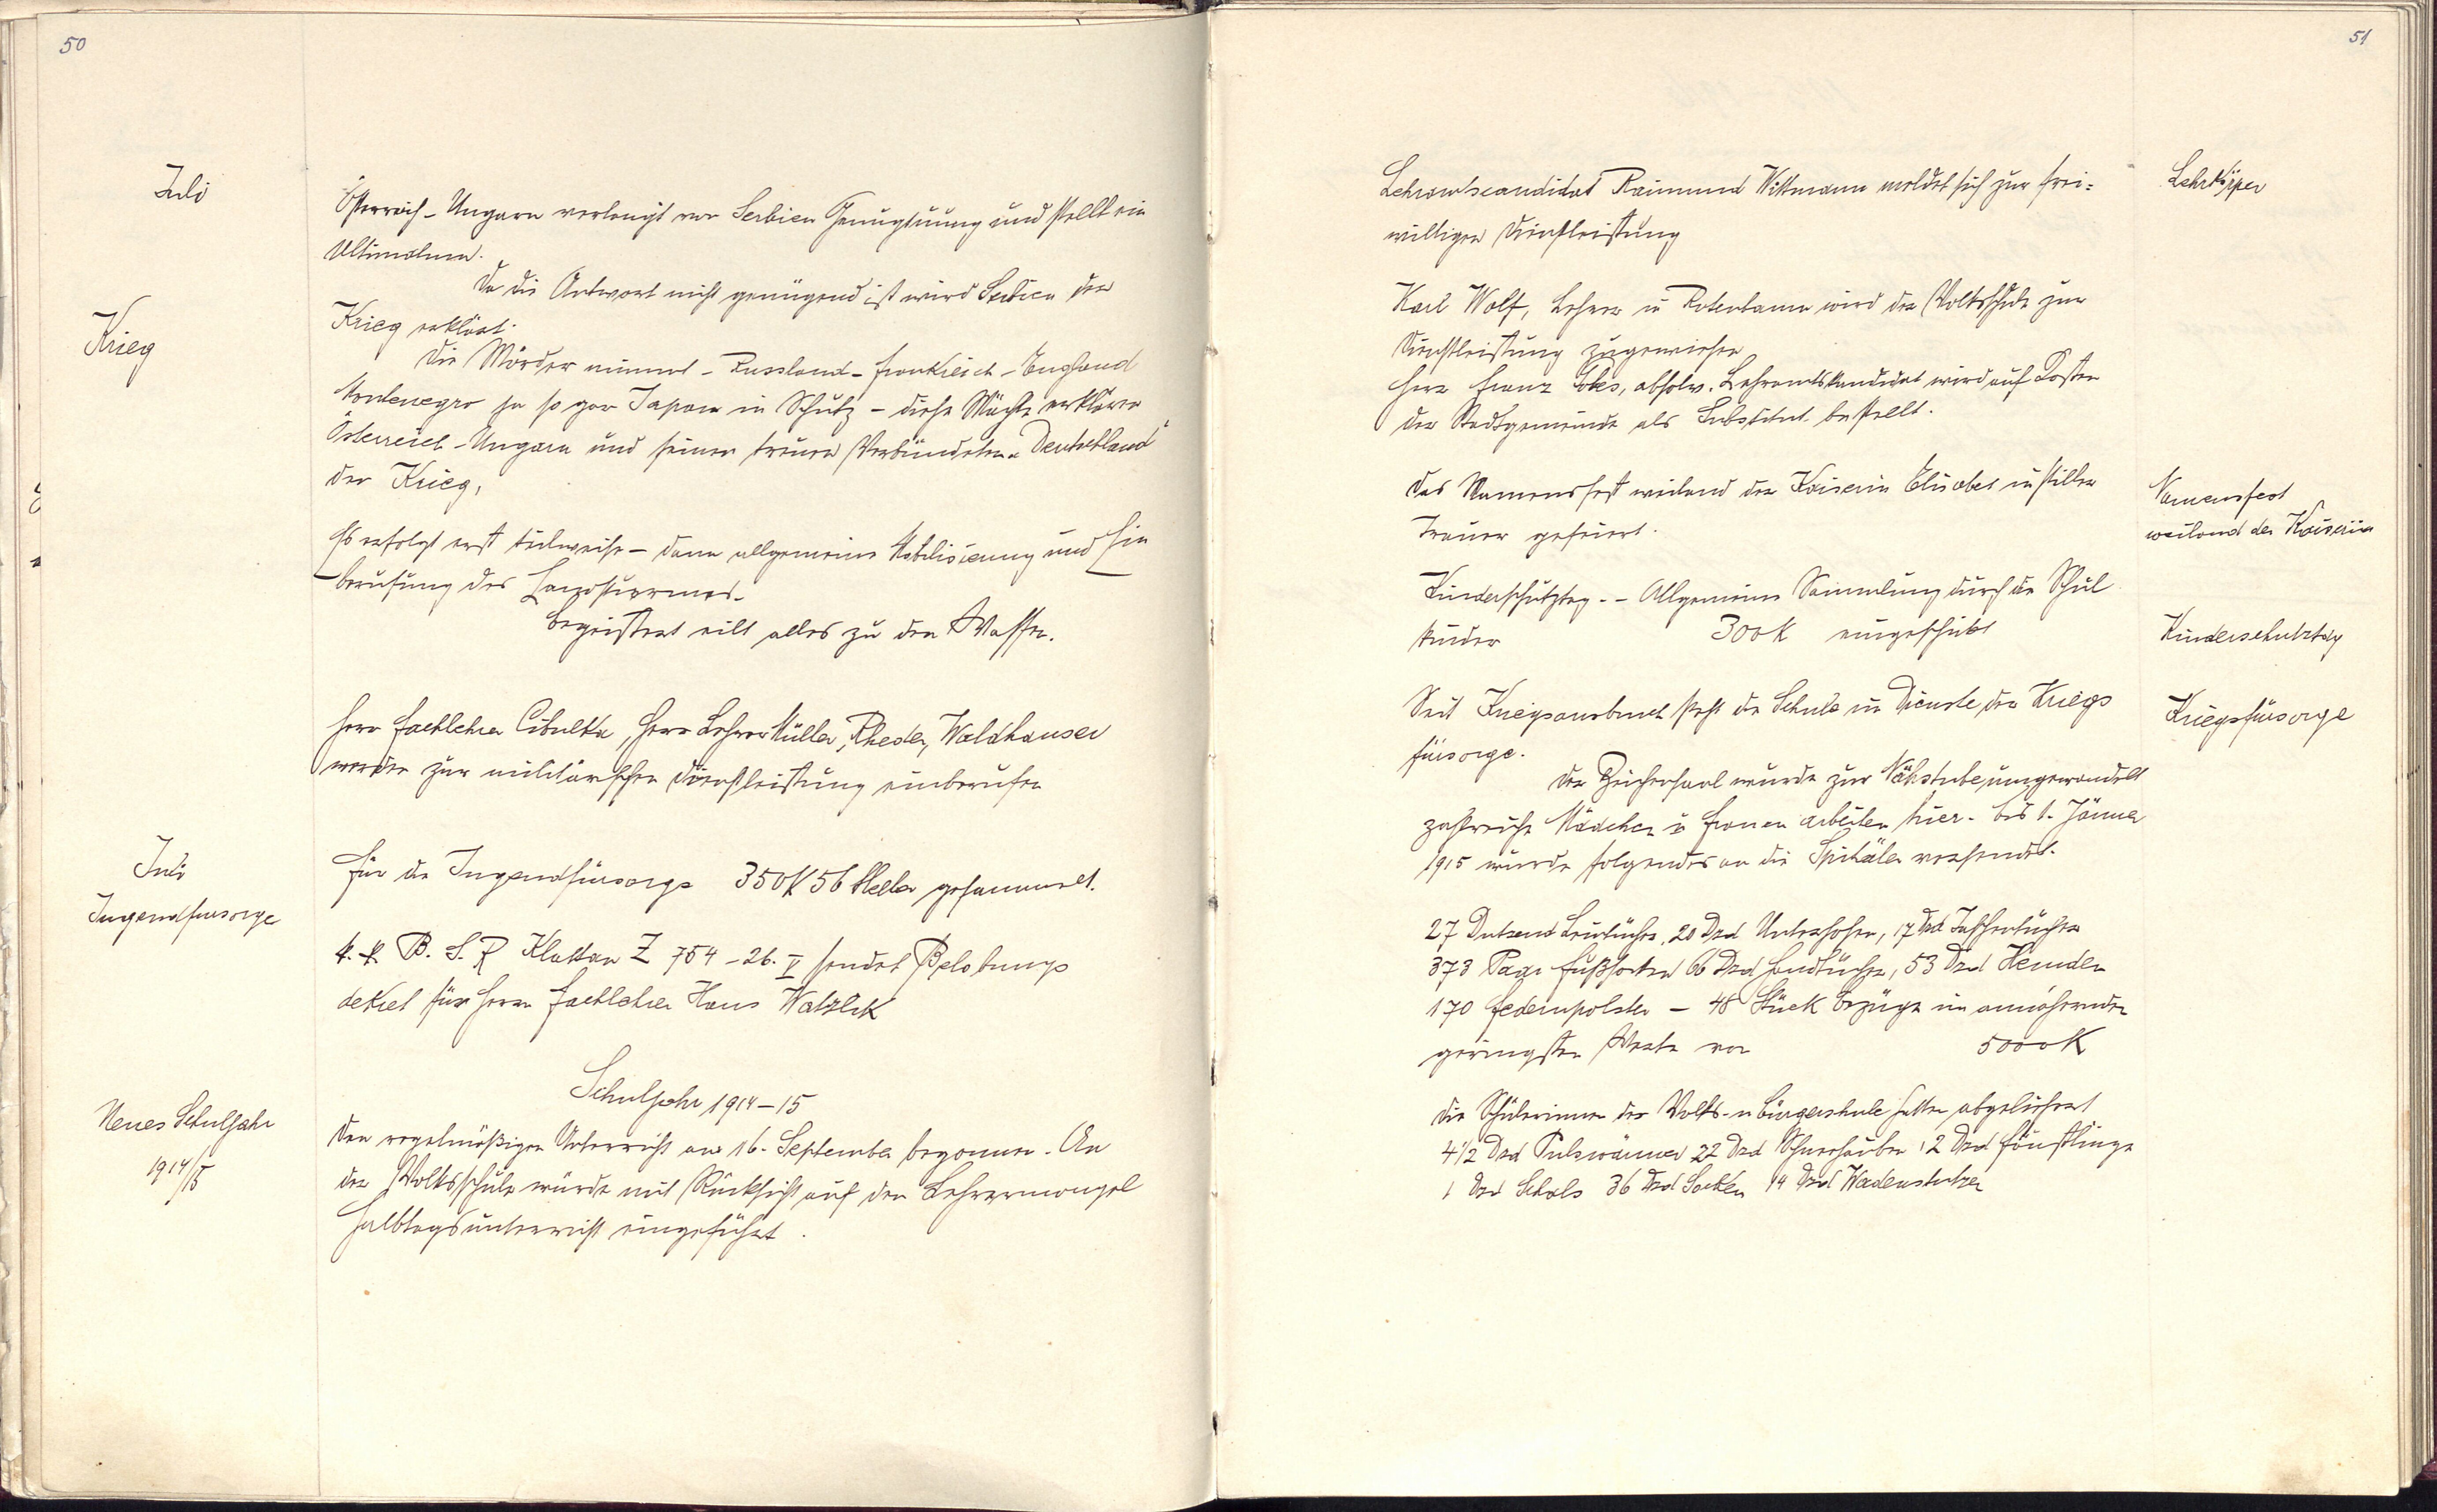 50
Juli
Österreich-Ungarn verlangt von Serbien Genugtuung und stellt ein
Ultimatum.
Da die Antwort nicht genügend ist wird Serbien der
Krieg
Krieg erklärt.
Die Mörder nimmt - Russland - Frankreich - England
Montenegro ja so gar Japan in Schutz - diese Mächte erklären
Österreich-Ungarn und seinen treuen Verbündeten "Deutschland"
den Krieg,
Es erfolgt erst teilweise - dann allgemeine Mobilisierung und Ein
berufung des Landsturmes.
Begeistert eilt alles zu den Waffen.
Herr Fachlehrer Cibulka, Herr Lehrer Müller, Rheder, Waldhauser
werden zur militärischen Dienstleistung einberufen
Juli
Jugendfürsorge
Für die Jugendfürsorge 350K 56 Heller gesammelt.
k. k. B. S. R Klattau Z 754 - 26. V sendet Belobungs
dekret für Herrn Fachlehrer Hans Watzlik
Schuljahr 1914-15
Neues Schuljahr
1914/15
Den regelmäßigen Unterricht am 16. September begonnen. An
der Volksschule wurde mit Rücksicht auf den Lehrermangel
Halbtagsunterricht eingeführt.
51
Lehrkörper
Lehramtscandidat Raimund Wittmann meldet sich zur frei-
willigen Dienstleistung
Karl Wolf, Lehrer in Rotenbaum wird der Volksschule zur
Dienstleistung zugewiesen
Herr Franz absolv. Lehramtskandidat wird auf Kosten
der Stadtgemeinde als Substitut bestellt.
Namensfest
weiland der Kaiserin
Das Namensfest weiland der Kaiserin Elisabet in stiller
Trauer gefeiert.
Kinderschutztag
Kinderschutztag. - Allgemeine Sammlung durch die Schul
kinder 300K eingeschickt
Kriegsfürsorge
Seit Kriegsausbruch steht die Schule im Dienste der Kriegs
fürsorge.
Der Zeichensaal wurde zur Nähstube umgewandelt
zahlreiche Mädchen u Frauen arbeiten hier. Bis 1. Jänner
1915 wurde folgendes an die Spitäler versendet.
27 Dutzend Leintücher, 20 Dzd Unterhosen, 17 Dzd Taschentücher
373 Paar Fußsocken 66 Dzd Handtücher, 53 Dzd Hemden
170 Federnpolster - 48 Stück Bezüge im annähernden
geringsten Werte von 5000K
Die Schülerinnen der Volks- u Bürgerschule hatten abgeliefert
4 1/2 Dzd Pulswärmer 22 Dzd Schneehauben 12 Dzd Fäustlinge
1 Dzd Schals 36 Dzd Socken 14 Dzd Wadenstutzen